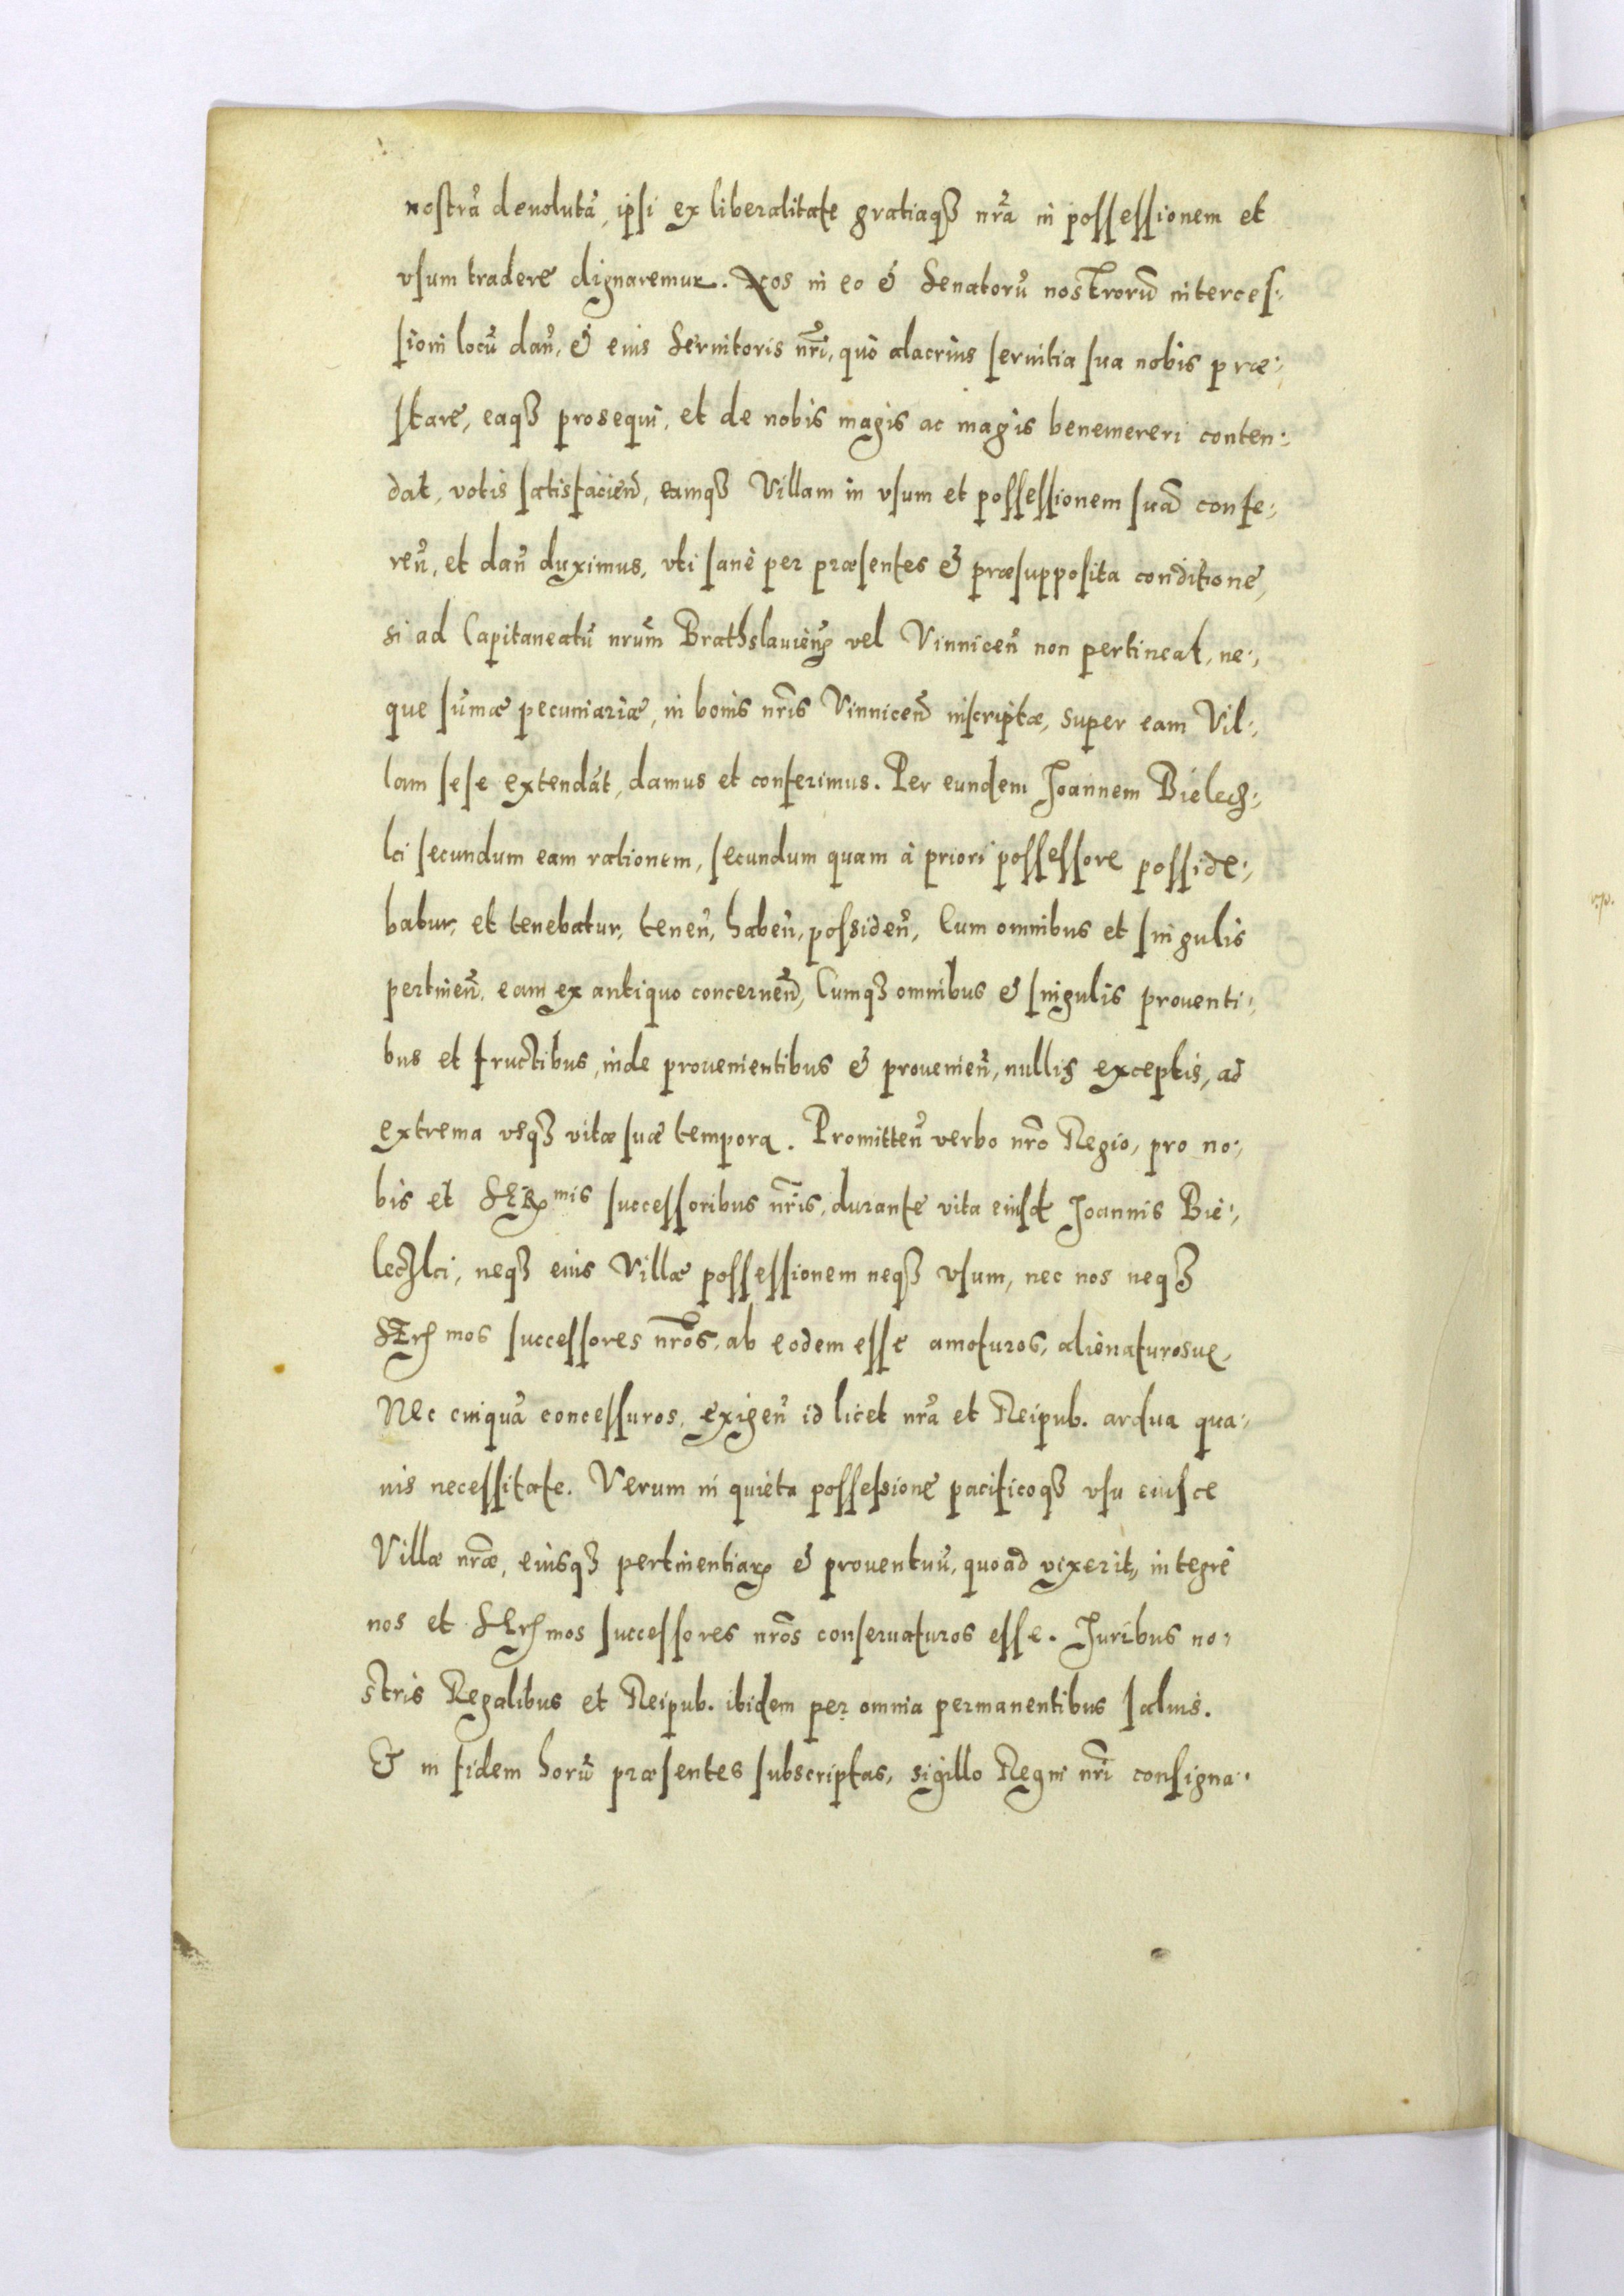 nostrã deuolutã, ipsi ex liberalitate gratiaqȝ nr̃a in possessionem et
vsum tradere dignaremur. Nos in eo & Senatorũ nostrorũ interces⸗
sioni locũ dañ, & eius Seruitoris nr̃i, quò alacrius seruitia sua nobis præ⸗
stare, eaqȝ prosequi, et de nobis magis ac magis benemereri conten⸗
dat, votis satisfacieñ, eamqȝ Villam in vsum et possessionem suã confe⸗
reñ, et dañ duximus, vti sanè per præsentes & præsupposita conditione,
si ad Capitaneatũ nrũm Brathslauieñ vel Vinniceñ non pertineat, ne⸗
que sũmæ pecuniariæ, in bonis nr̃is Vinniceñ inscriptæ, super eam Vil⸗
lam sese extendãt, damus et conferimus. Per eundem Joannem Bielecz⸗
ki secundum eam rationem, secundum quam à priori possessore posside⸗
batur, et tenebatur, teneñ, habeñ, possideñ, Cum omnibus et singulis
pertineñ, eam ex antiquo concerneñ, Cumqȝ omnibus & singulis prouenti⸗
bus et fructibus, inde prouenientibus & prouenieñ, nullis exceptis, ad
extrema vsqȝ vitæ suæ tempora. Promitteñ verbo nr̃o Regio, pro no⸗
bis et Ser mis successoribus nr̃is, durante vita eiusd Joannis Bie⸗
leczki, neqȝ eius Villæ possessionem neqȝ vsum, nec nos neqȝ
Ser mos successores nr̃os, ab eodem esse amoturos, alienaturosue,
Nec cuiquã concessuros, exigeñ id licet nr̃a et Reipub. ardua qua⸗
uis necessitate. Verum in quieta possessione pacificoqȝ vsu eiusce
Villæ nr̃æ, eiusqȝ pertinentiarꝝ & prouentuũ, quoad vixerit, integrè
nos et Ser mos successores nr̃os conseruaturos esse. Juribus no⸗
stris Regalibus et Reipub. ibidem per omnia permanentibus saluis.
& in fidem horũ præsentes subscriptas, sigillo Regni nr̃i consigna⸗